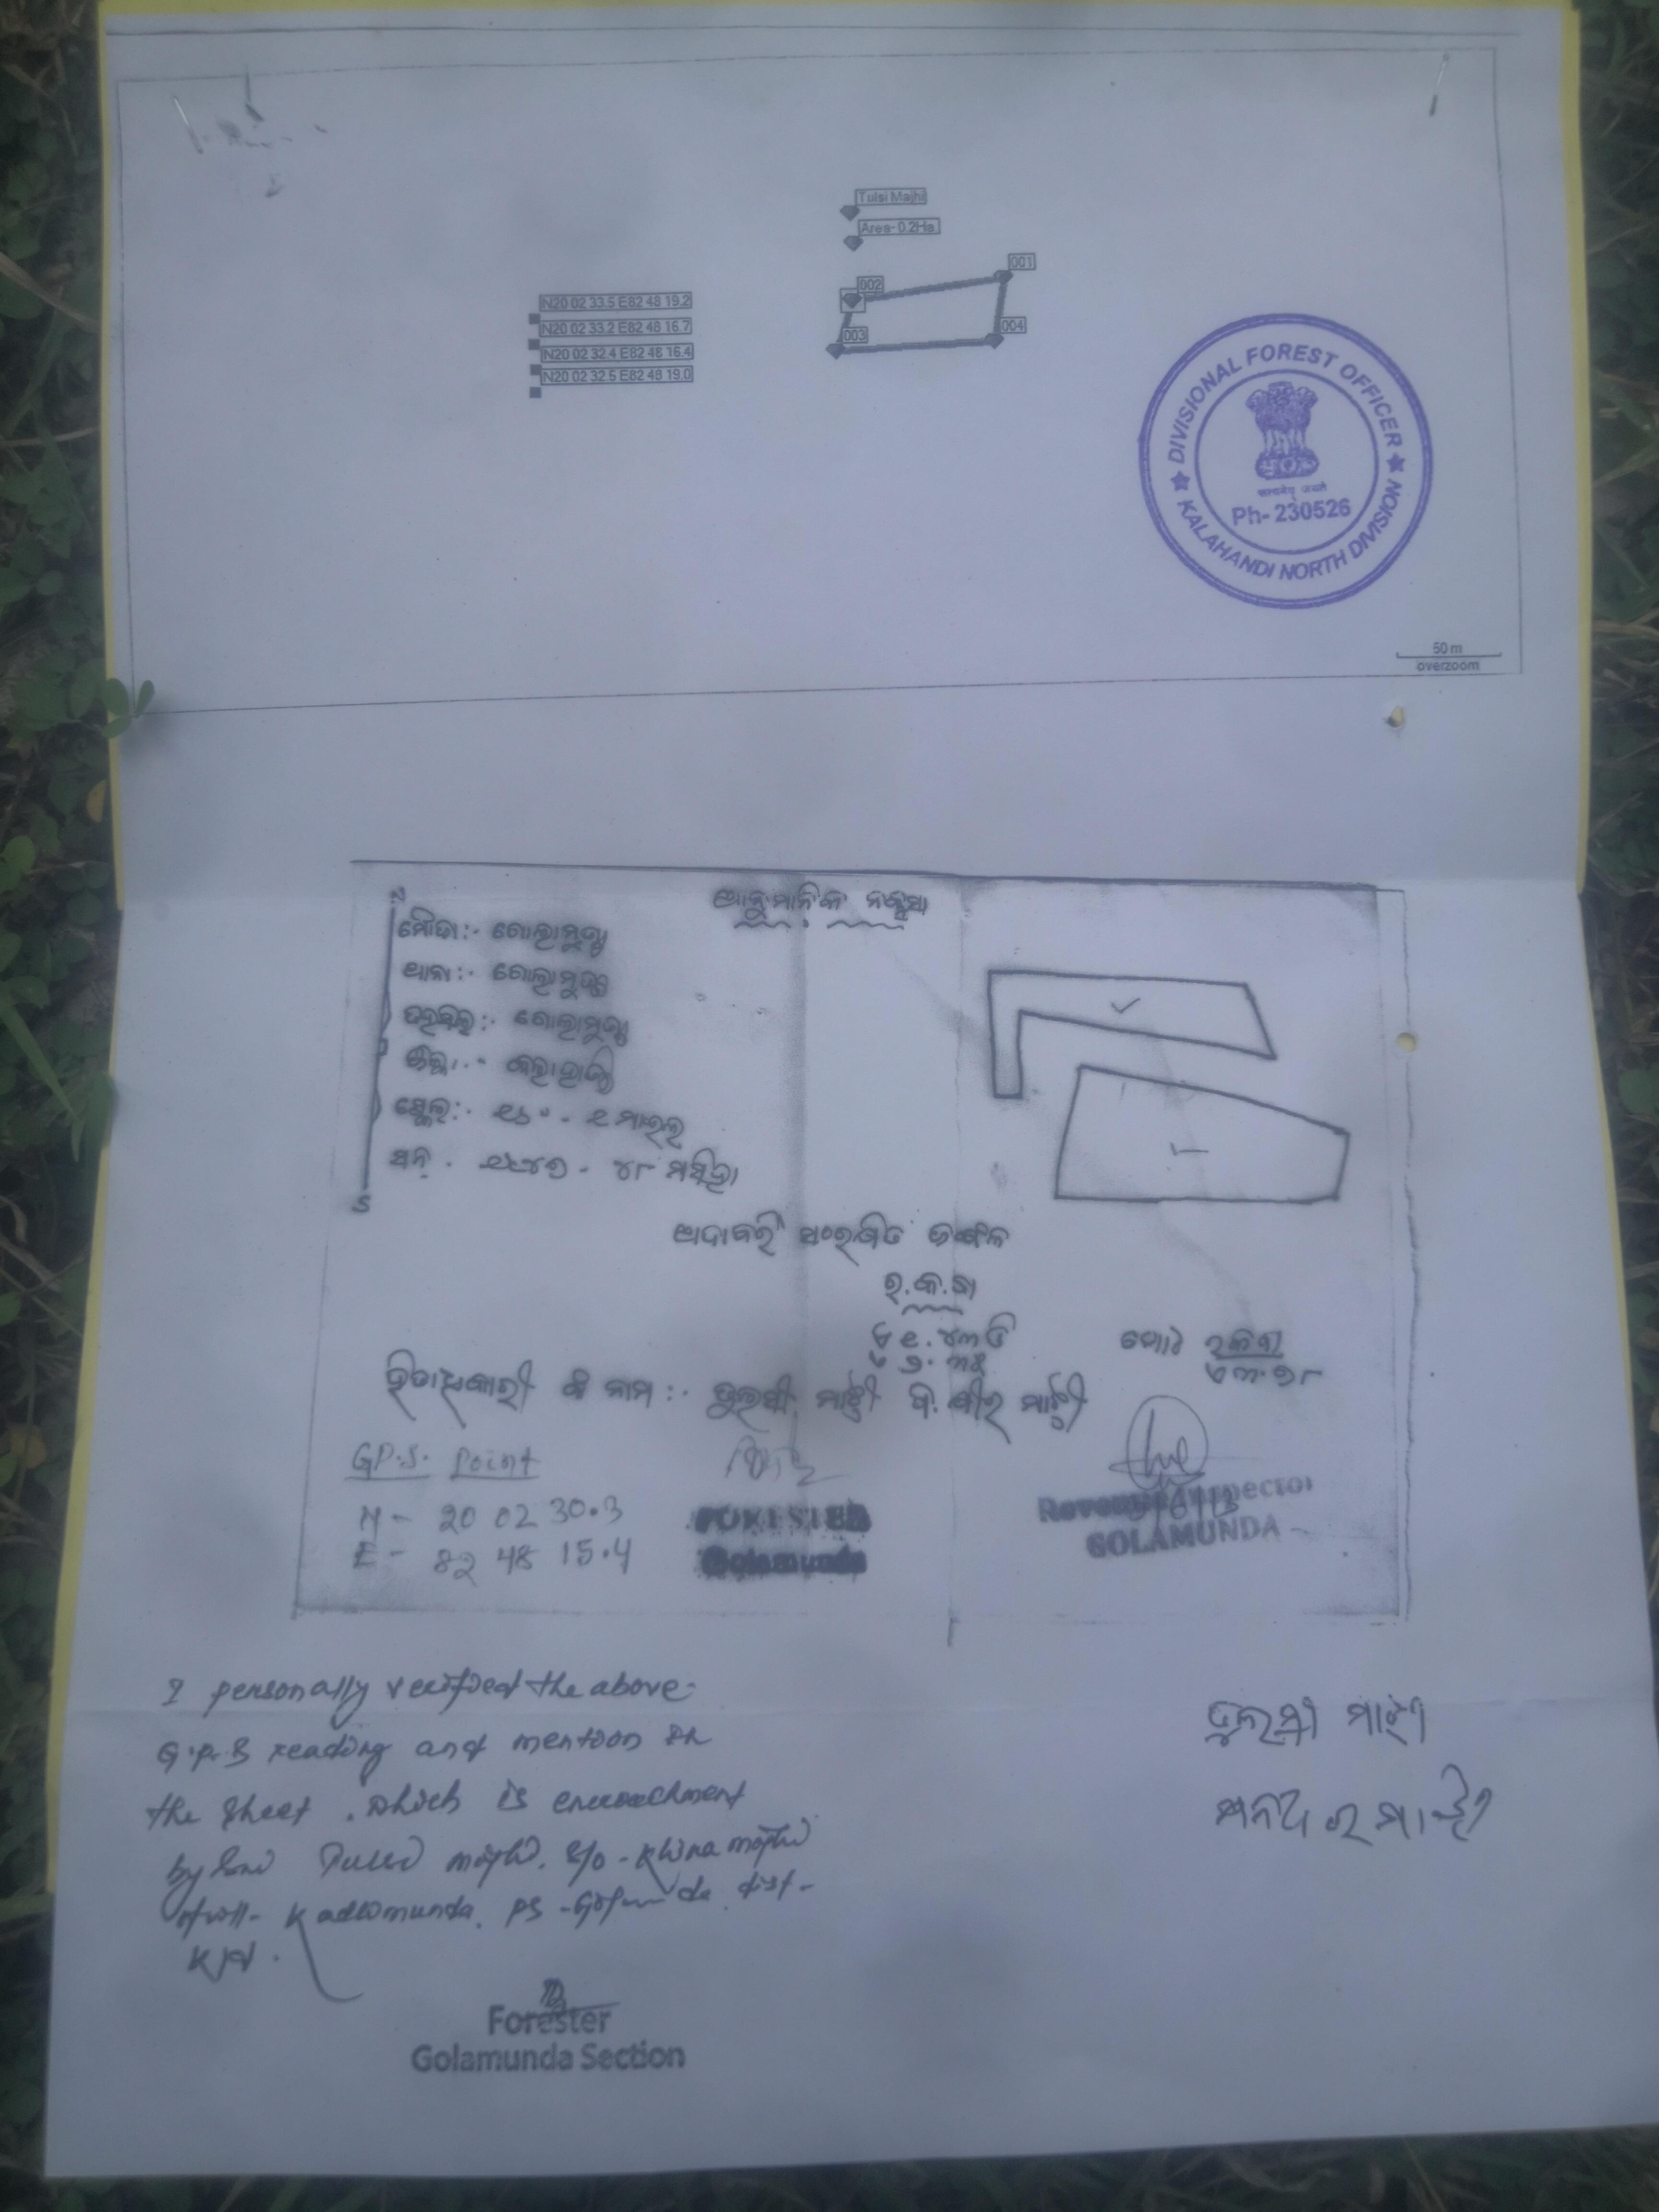 Tulsi Majhi
Area-0.2Ha
001
002
003
004
N20 02 33.5 E82 48 19.2
N20 02 33.2 E82 48 16.7
N20 02 32.4 E82 48 16.4
N20 02 32.5 E82 48 19.0
DIVISIONAL FOREST OFFICER
सत्यमेव जयते
Ph- 230526
KALAHANDI NORTH DIVISION
50 m
overzoom
ଆନୁମାନିକ ନକ୍ସା
N
ମୌଜା:- ଗୋଲାମୁଣ୍ଡା
ଥାନା:- ଗୋଲାମୁଣ୍ଡା
ତହସିଲ:- ଗୋଲାମୁଣ୍ଡା
ଜିଲ୍ଲା:- କଳାହାଣ୍ଡି
ସ୍କେଲ:- ୧୬" - ୧ ମାଇଲ
ସନ୍ - ୧୯୪୭ - ୪୮ ମସିହା
S
ସଂରକ୍ଷିତ ଜଙ୍ଗଲ
ର.କ.ବା
ହିତାଧିକାରୀ ଙ୍କ ନାମ :- ତୁଲସୀ ମାଝୀ ପି. ଖୀର ମାଝୀ
G.P.S. Point
N - 20 02 30.3
E - 82 48 15.4
FORESTER
Golamunda
Revenue Inspector
GOLAMUNDA
I personally verified the above
G.P.S reading and mention in
the sheet. which is encroachment
by Tulsi majhi. S/o - Khira majhi
of vill- Kadlomunda. PS - dist-
ତୁଲସୀ ମାଝୀ
Forester
Golamunda Section